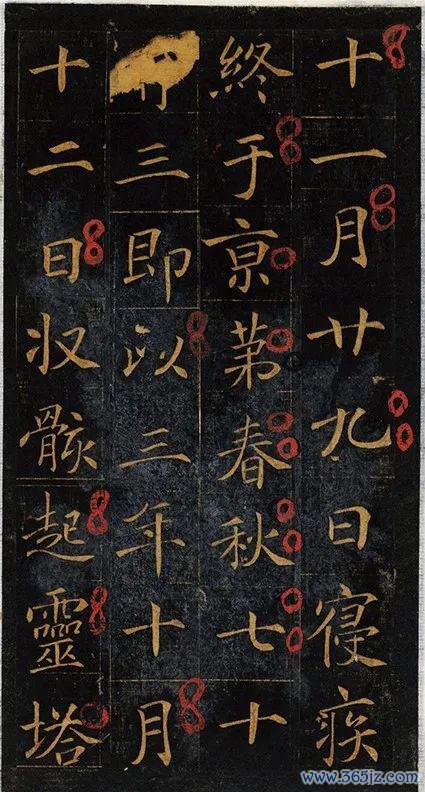 十一月廿九日寑疾
終于京第春秋七十
三即以三年十月
十二日收骸起靈塔
www.365jz.com